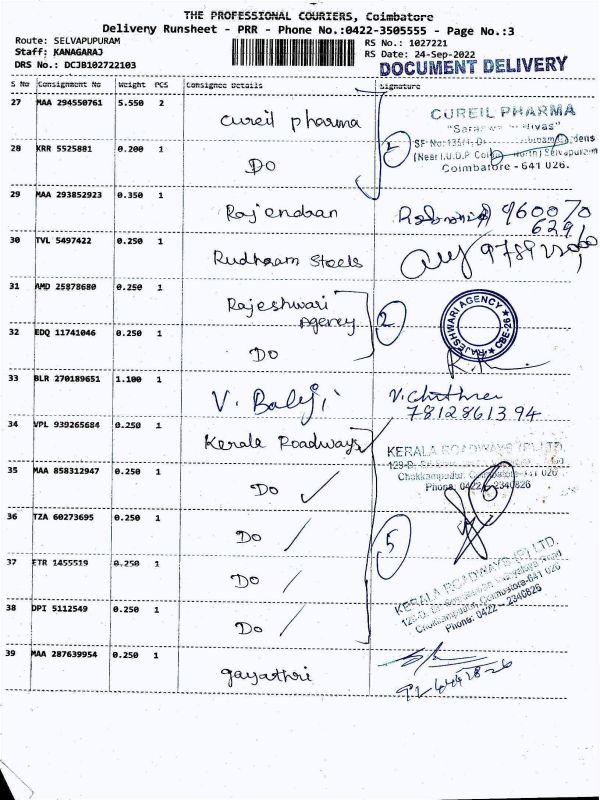 THE PROFESSIONAL COURIERS, Coimbatore
Delivery Runsheet - PRR - Phone No.:0422-3505555 - Page No.:3
Route: SELVAPUPURAM
Staff: KANAGARAJ
DRS No.: DCJB102722103
RS No.: 1027221
RS Date: 24-Sep-2022
DOCUMENT DELIVERY
S No Consignment No Weight PCS Consignee Details Signature
27 MAA 294550761 5.550 2 Cureil pharma
CUREIL PHARMA
(Near I.U.D.P Selvapuram
Coimbatore - 641 026.
28 KRR 5525881 0.200 1 Do
29 MAA 293852923 0.350 1 Rajendran 960070
6291
30 TVL 5497422 0.250 1 Rudhram Steels
31 AMD 25878680 0.250 1 Rajeshwari
Agency
2
RAJESHWARI AGENCY CBE-26
32 EDQ 11741046 0.250 1 Do
33 BLR 270189651 1.100 1 V. Balaji V. Chithra
7812861394
34 VPL 939265684 0.250 1 Kerala Roadways
KERALA ROADWAYS (P) LTD.
Chokkampudur, Coimbatore-641 026
Phone: 0422 - 2340826
35 MAA 858312947 0.250 1 Do
36 TZA 60273695 0.250 1 Do
5
37 ETR 1455519 0.250 1 Do
KERALA ROADWAYS (P) LTD.
Chokkampudur, Coimbatore-641 026
Phone: 0422 - 2340826
38 DPI 5112549 0.250 1 Do
39 MAA 287639954 0.250 1 gayathri